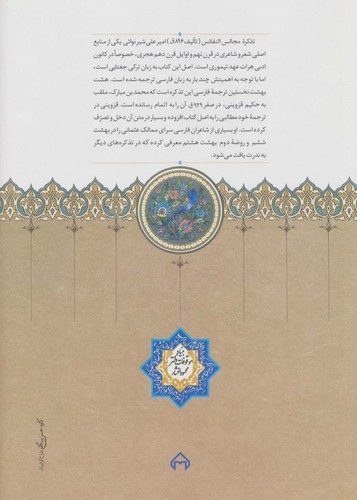 تذکرهٔ مجالس النفائس (تألیف ۸۹۶ق) امیر علی شیر نوائی یکی از منابع
اصلی شعر و شاعری در قرن نهم و اوایل قرن دهم هجری، خصوصاً در کانون
ادبی هرات عهد تیموری است. اصل این کتاب به زبان ترکی جغتایی است،
اما با توجه به اهمیتش چند بار به زبان فارسی ترجمه شده است. هشت
بهشت نخستین ترجمهٔ فارسی این تذکره است که محمد بن مبارک، ملقب
به حکیم قزوینی، در صفر ۹۲۹ق آن را به اتمام رسانده است. قزوینی در
ترجمهٔ خود مطالبی را به اصل کتاب افزوده و بسیار در متن آن دخل و تصرّف
کرده است. او بسیاری از شاعران فارسی سرای ممالک عثمانی را در بهشت
ششم و روضهٔ دوم بهشت هشتم معرفی کرده که در تذکره‌های دیگر
به ندرت یافت می‌شود.
بنیاد
موقوفات دکتر
محمود افشار